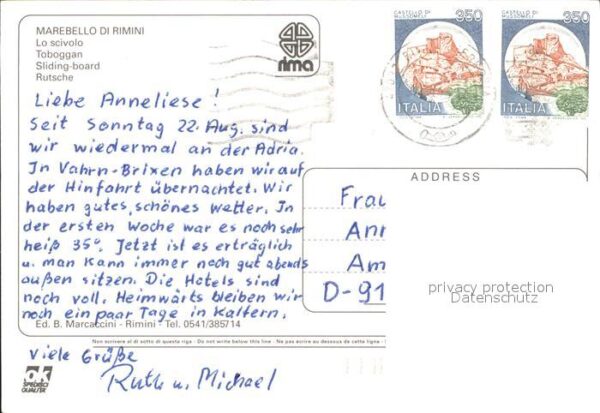 MAREBELLO DI RIMINI
Lo scivolo
Toboggan
Sliding-board
Rutsche
rima
CASTELLO DI MUSSOMELI
350
ITALIA
CASTELLO DI MUSSOMELI
350
ITALIA
Liebe Anneliese !
Seit Sonntag 22. Aug. sind
wir wiedermal an der Adria.
In Vahrn-Brixen haben wir auf
der Hinfahrt übernachtet. Wir
haben gutes, schönes Wetter. In
der ersten Woche war es noch sehr
heiß 35°. Jetzt ist es erträglich
u. man kann immer noch gut abends
außen sitzen. Die Hotels sind
noch voll. Heimwärts bleiben wir
noch ein paar Tage in Kaltern.
Viele Grüße
Ruth u. Michael
ADDRESS
Frau
Ann
Am
D-91
privacy protection
Datenschutz
Ed. B. Marcaccini - Rimini - Tel. 0541/385714
Non scrivere al di sotto di questa riga - Do not write below this line - Ne pas écrire au dessous de cette ligne -
ok